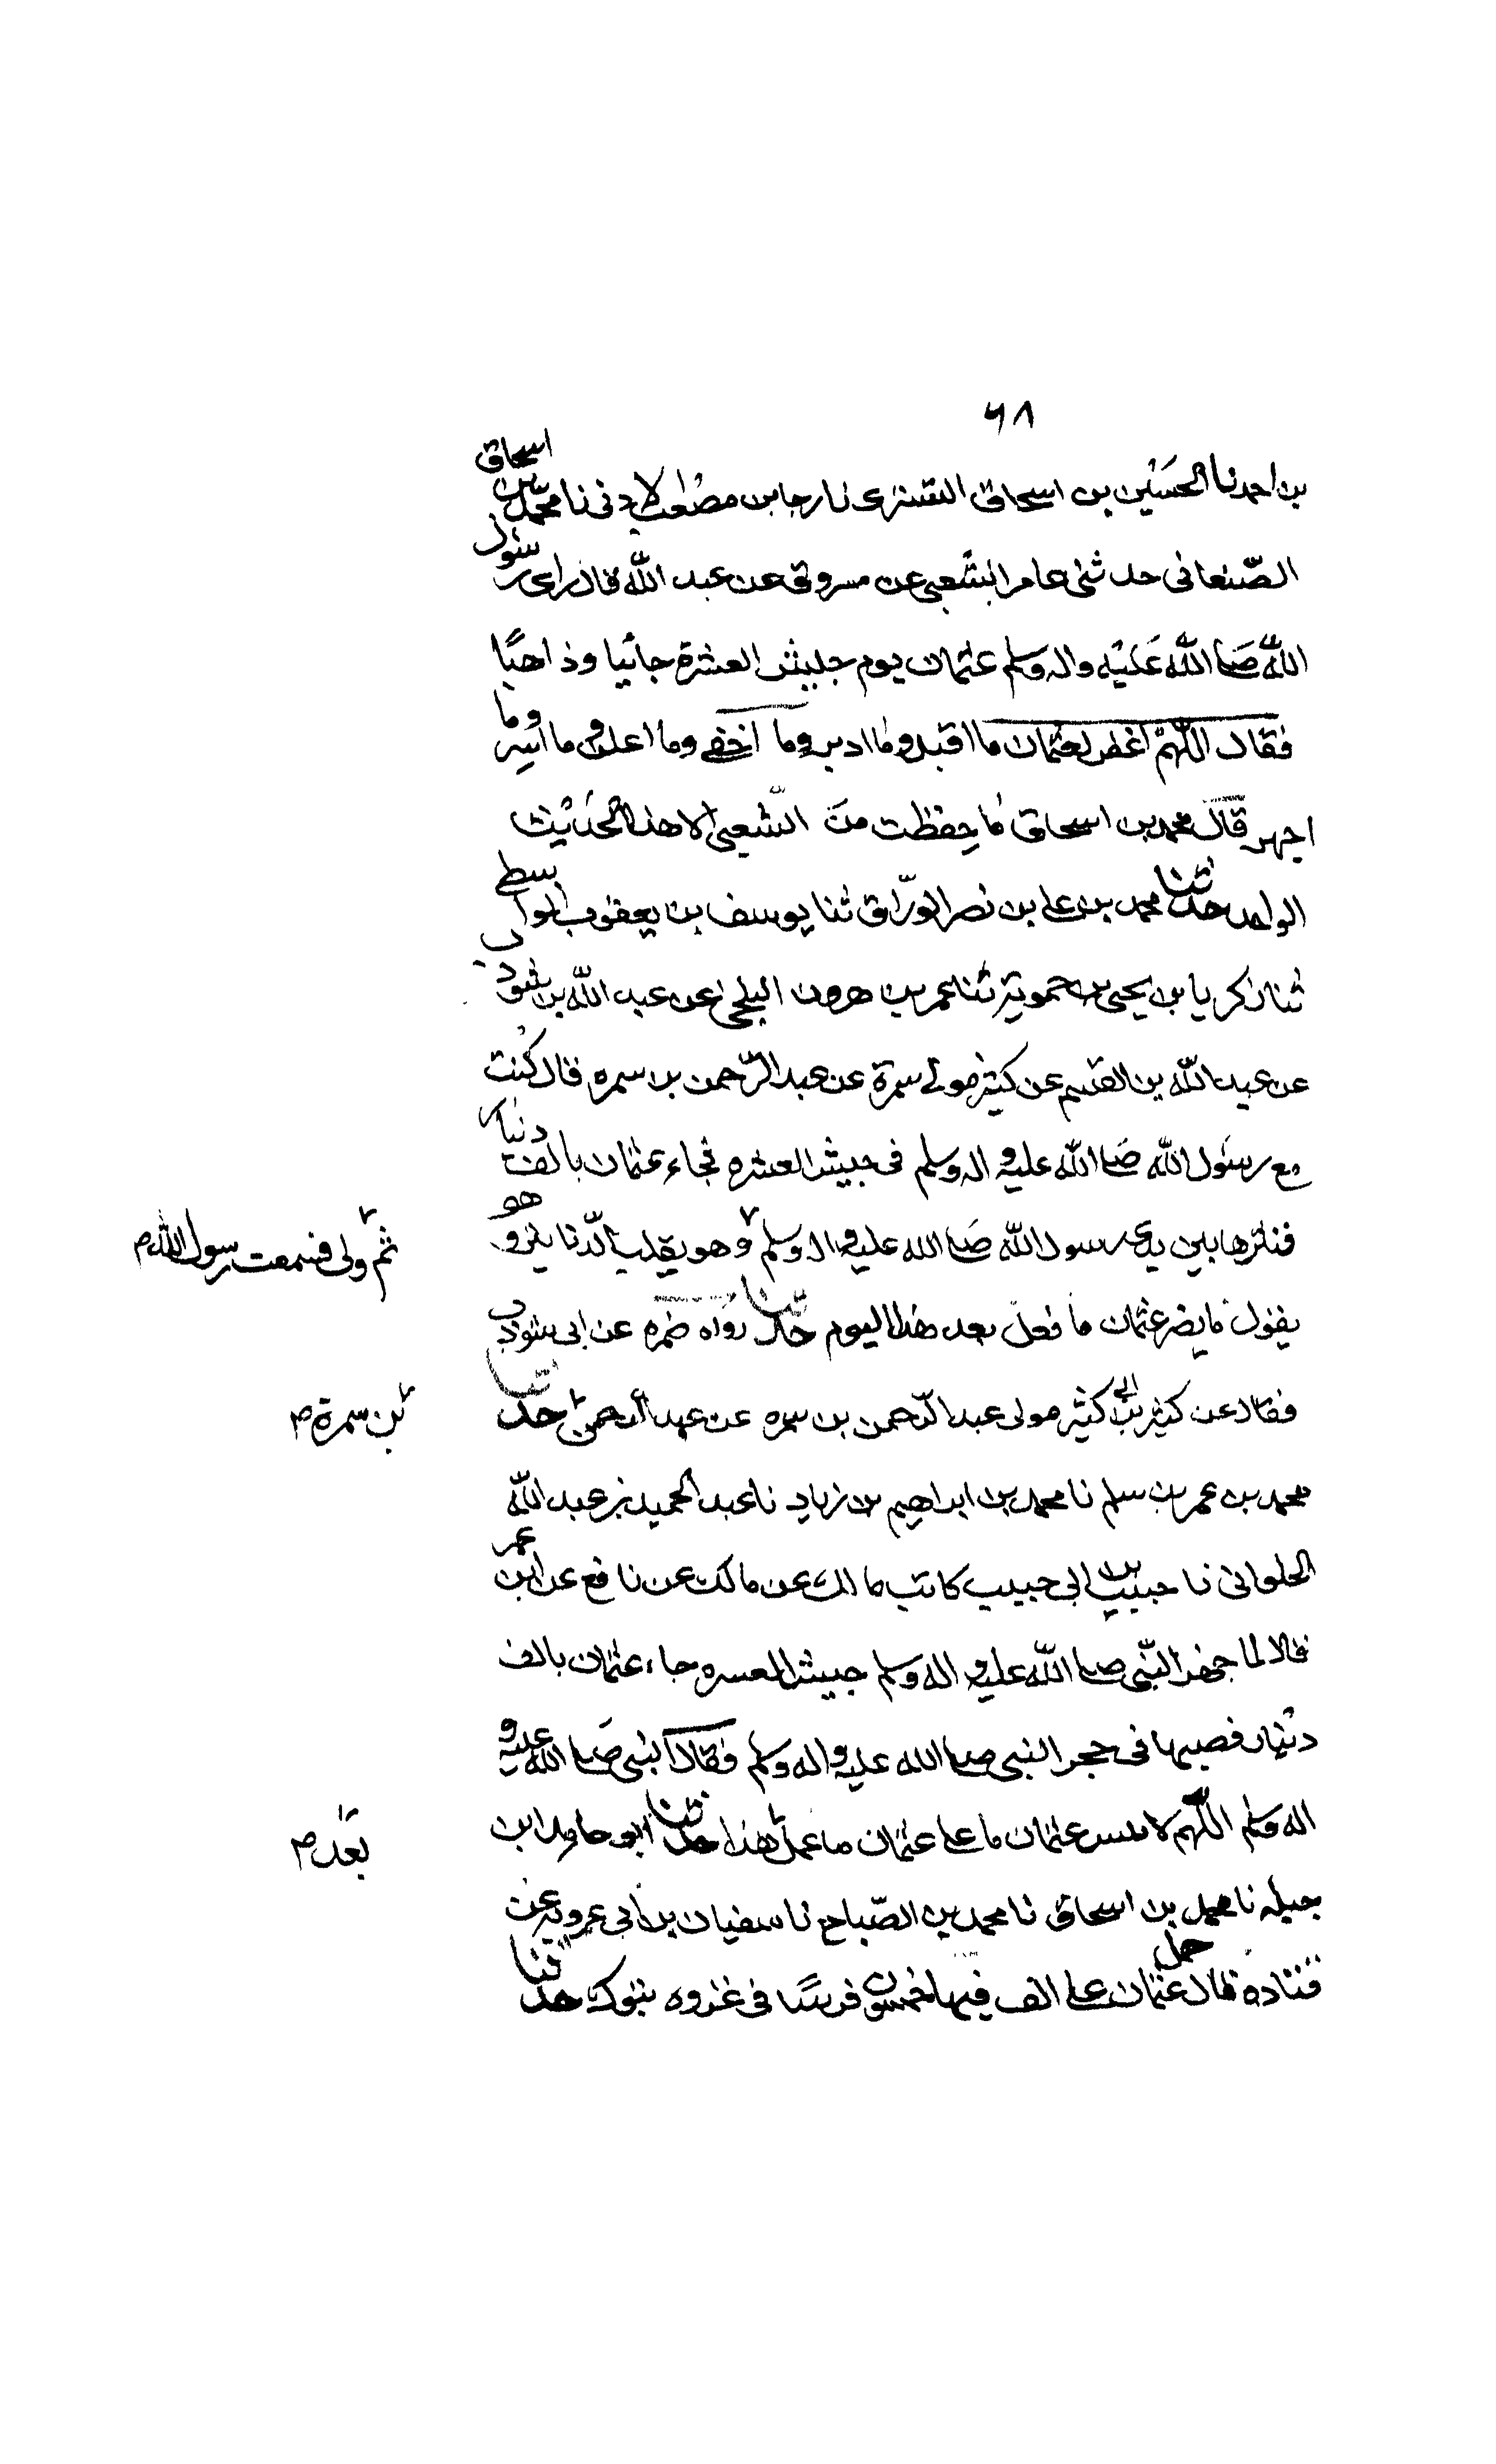 ٦٨
بن احمد نا الحسين بن اسحاق التستري نا رجا بن مصعب الادني نا محمد بن اسحاق
الصنعاني حدثني عامر الشعبي عن مسروق عن عبد الله قال راى رسول
الله صلى الله عليه واله وسلم عثمان يوم جيش العشرة جائيا وذاهبا
فقال اللهم اغفر لعثمان ما اقبل وما ادبر وما اخفى وما اعلن وما اسر وما
اجهر قال محمد بن اسحاق ما حفظت من الشعبي الا هذا الحديث
الواحد حدثنا محمد بن علي بن نصر الوراق ثنا يوسف بن يعقوب الواسطي
ثنا زكريا بن يحيى بن حمويه ثنا عمر بن هرون البلخي عن عبد الله بن شوذب
عن عبد الله بن القسم عن كثير مولى سمرة عن عبد الرحمن بن سمره قال كنت
مع رسول الله صلى الله عليه واله وسلم في جيش العشره فجاء عثمان بالف دينار
فنثرها بين يدي رسول الله صلى الله عليه واله وسلم وهو يقلب الدنانير وهو
ثم ولى فسمعت رسول الله م
يقول ما يضر عثمان ما فعل بعد هذا اليوم حدثنا رواه ضمره عن ابي شوذب
فقال عن كثير بن ابي كثير مولى عبد الرحمن بن سمره عن عبد الرحمن حدثنا
بن سمرة م
محمد بن عمر بن سلم نا محمد بن ابراهيم بن زياد نا عبد الحميد بن عبد الله
الحلواني نا حبيب بن ابي حبيب كاتب مالك عن مالك عن نافع عن ابن عمر
قال لما جهز النبي صلى الله عليه واله وسلم جيش العسره جاء عثمان بالف
دينار فصبها في حجر النبي صلى الله عليه واله وسلم فقال النبي صلى الله عليه و
اله وسلم اللهم لا تنس عثمان ما على عثمان ما عمل هذا حدثنا ابو حامد ابن
بعد م
جبله نا محمد بن اسحاق نا محمد بن الصباح نا سفيان بن ابي عروبه عن
قتادة قال حمل عثمان على الف فيها خمسون فرسا في غزوه تبوك حدثنا